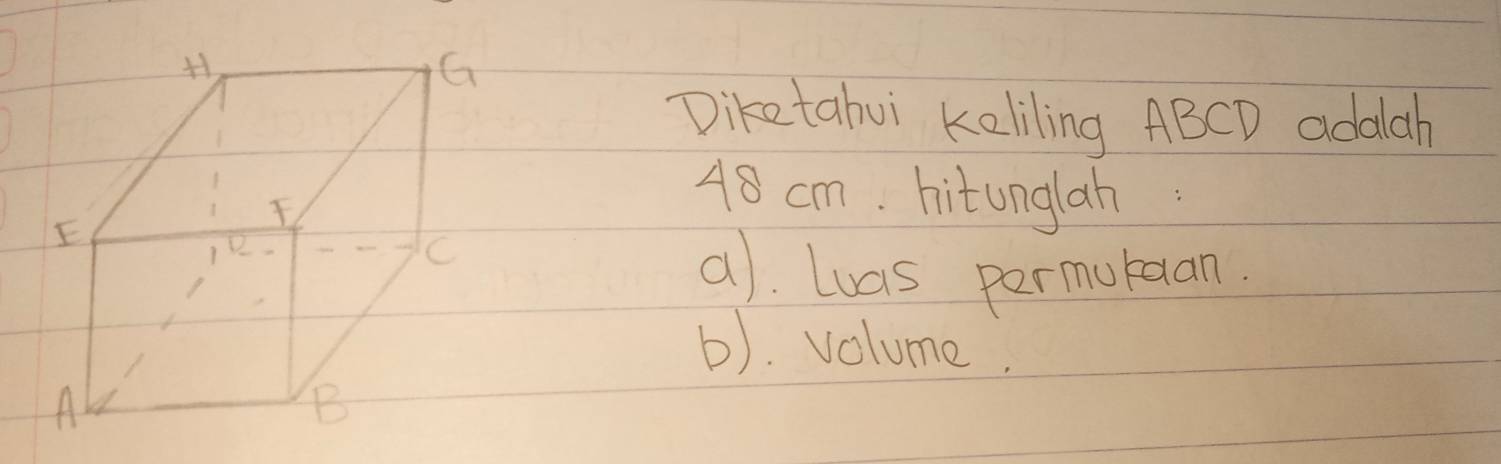 H G
E F
D C
A B
Diketahui keliling ABCD adalah
48 cm. hitunglah :
a). Luas permukaan.
b). Volume.